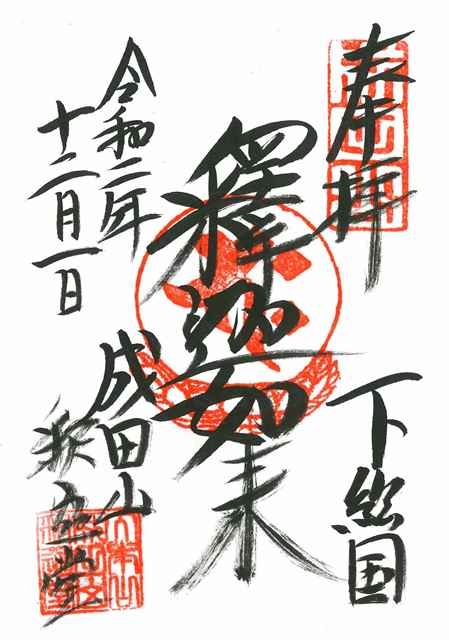 奉拝
下総国
釋迦如来
令和二年
十二月一日
成田山
釈迦堂